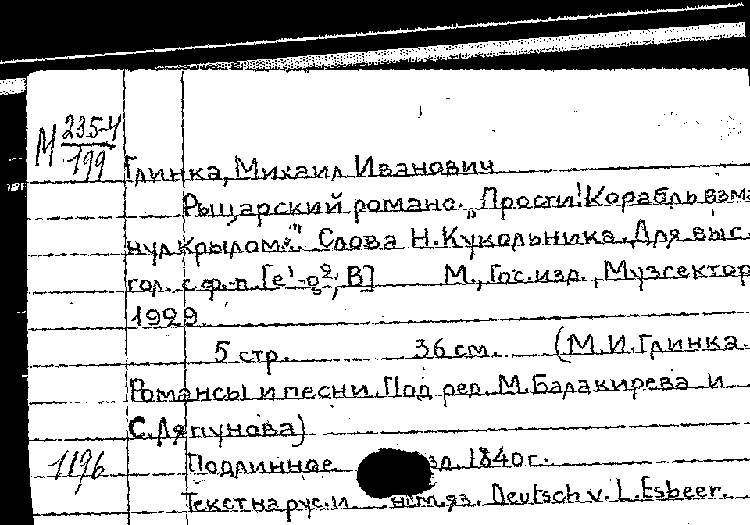 М 235-4
199
Глинка, Михаил Иванович
Рыцарский романс. „Прости! Корабль взма
нул крылом". Слова Н. Кукольника. Для выс.
гол. с ф-п. [e¹-g², B] М., Гос. изд., Музсектор
1929.
5 стр. 36 см. (М. И. Глинка.
Романсы и песни. Под ред. М. Балакирева и
С. Ляпунова)
1196
Подлинное зд. 1840 г.
Текст на рус. и нем. яз. Deutsch v. L. Esbeer.